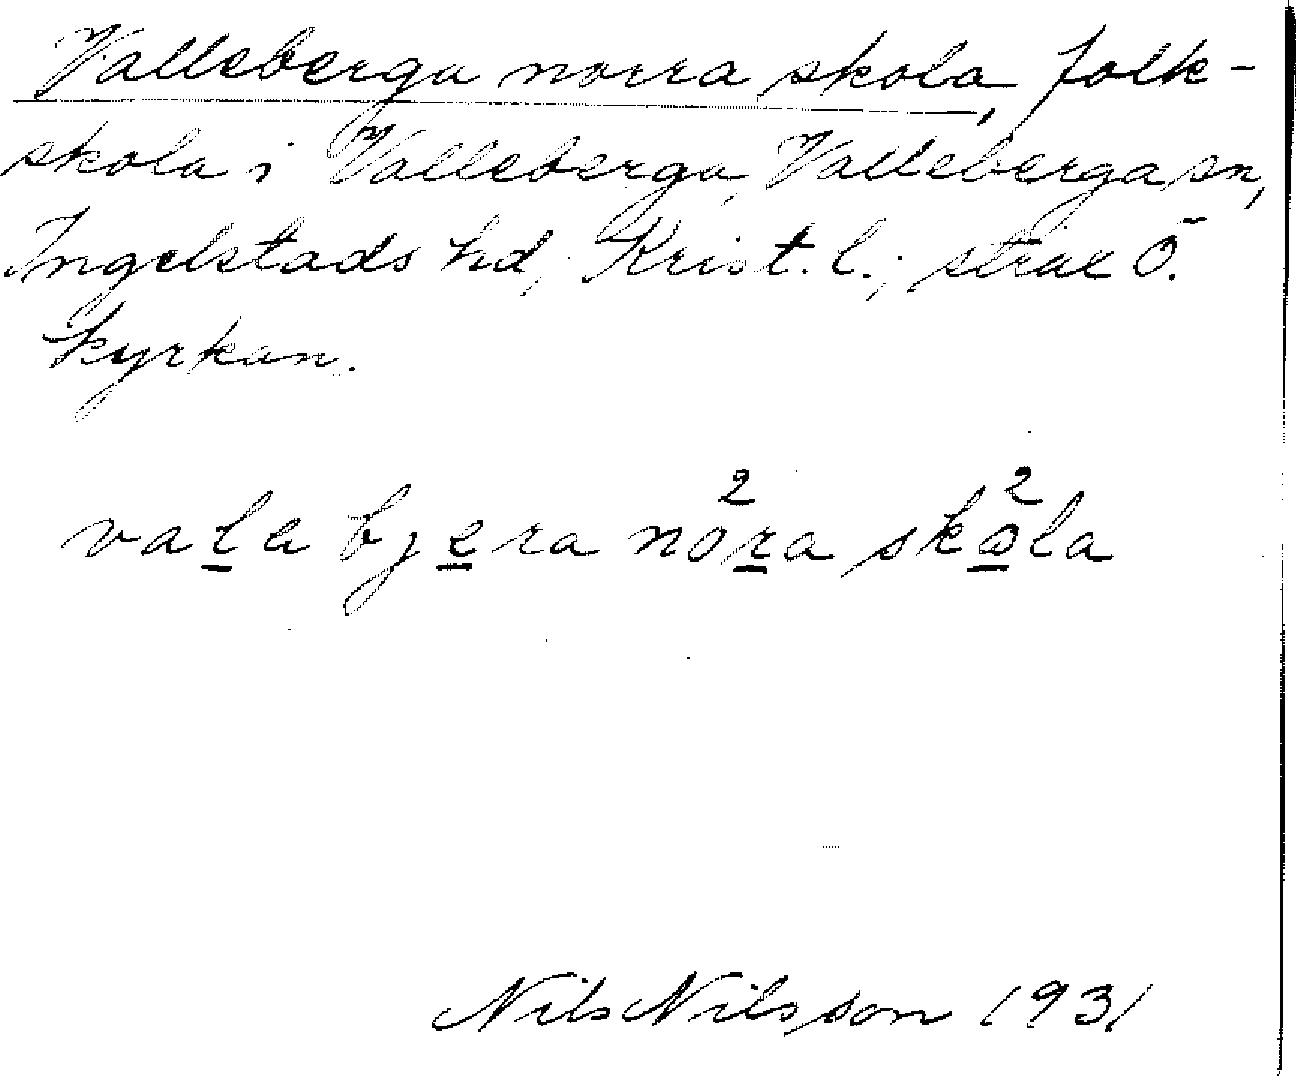 Valleberga norra skola, folk-
skola i Valleberga, Valleberga sn,
Ingelstads hd, Krist. l.; strax Ö.
kyrkan.
vala bjera no²ra sko²la
Nils Nilsson 1931